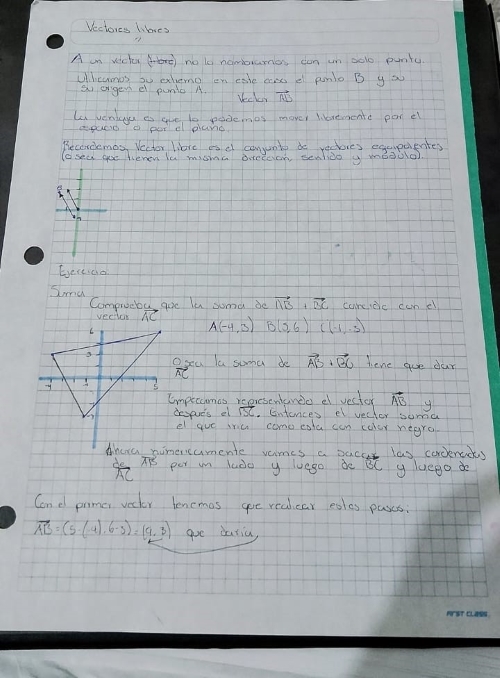 Vectores libres
A un vector (libre) no lo nombramos con un solo punto.
Utilizamos su extremo en este caso el punto B y su
su origen el punto A.
Vector AB
La ventaja es que lo podemos mover libremente por el
espacio o por el plano.
Recordemos Vector libre es el conjunto de vectores equipolentes
(o sea que tienen la misma dirección, sentido y módulo).
Ejercicio
Suma
Comprueba que la suma de AB + BC coincide con el
vector AC
A(-4,3) B(5,6) C(-1,-3)
O sea la suma de AB + BC tiene que dar
AC
Empezamos representando el vector AB y
después el BC. Entonces el vector suma
el que iria como esta con color negro.
Ahora númericamente vamos a sacar las cordenadas
de AB por un lado y luego de BC y luego de
AC
Con el primer vector tenemos que realizar estos pasos:
AB = (5-(-4), 6-3) = (9, 3) que daría
FIRST CLASS